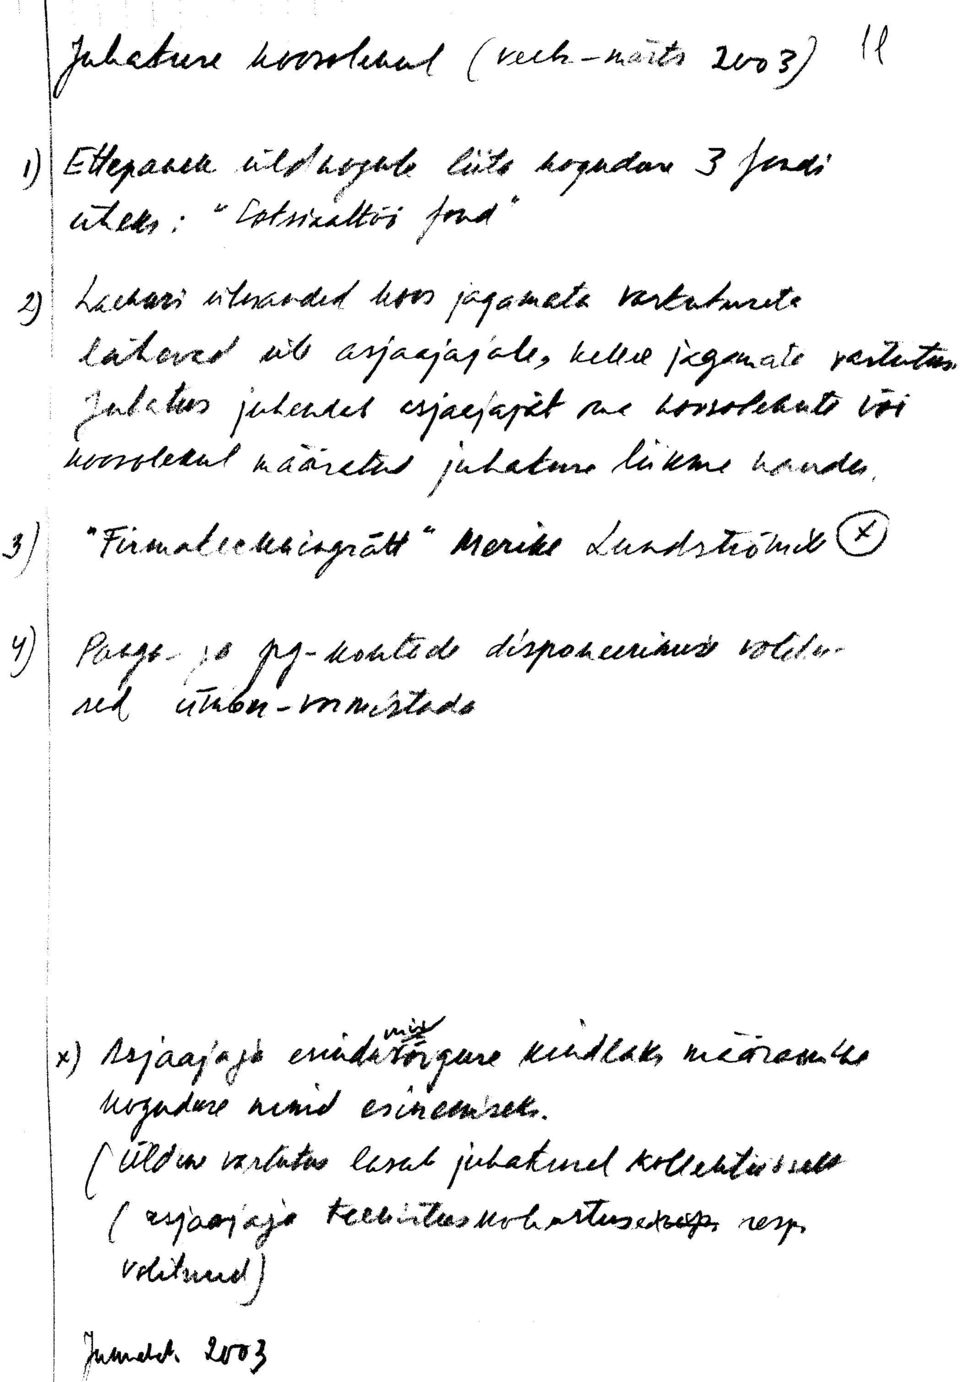 Juhatuse koosolekul (veeb-märts 2003) 11
1) Ettepanek üldkogule liita koguduse 3 fondi
üheks: "Sotsiaaltöö fond"
2) Laekuri ülesanded koos jagamata vastutusega
lähevad üle asjaajajale, kellele jagamata vastutus.
Juhatus juhendab asjaajajat oma koosolekute või
koosolekul määratud juhatuse liikme kaudu.
3) "Firmateckningrätt" Merike Lundströmile (x)
4) Panga- ja pg-kontode disponeerimise volitu-
sed ümber-vormistada
x) Asjaajaja esindamisõiguse kindlaks määramine
koguduse nimid esinemiseks.
(Üldine vastutus lasub juhatusel kollektiivselt
(asjaajaja teenistuskohustused resp.
volitused)
2003